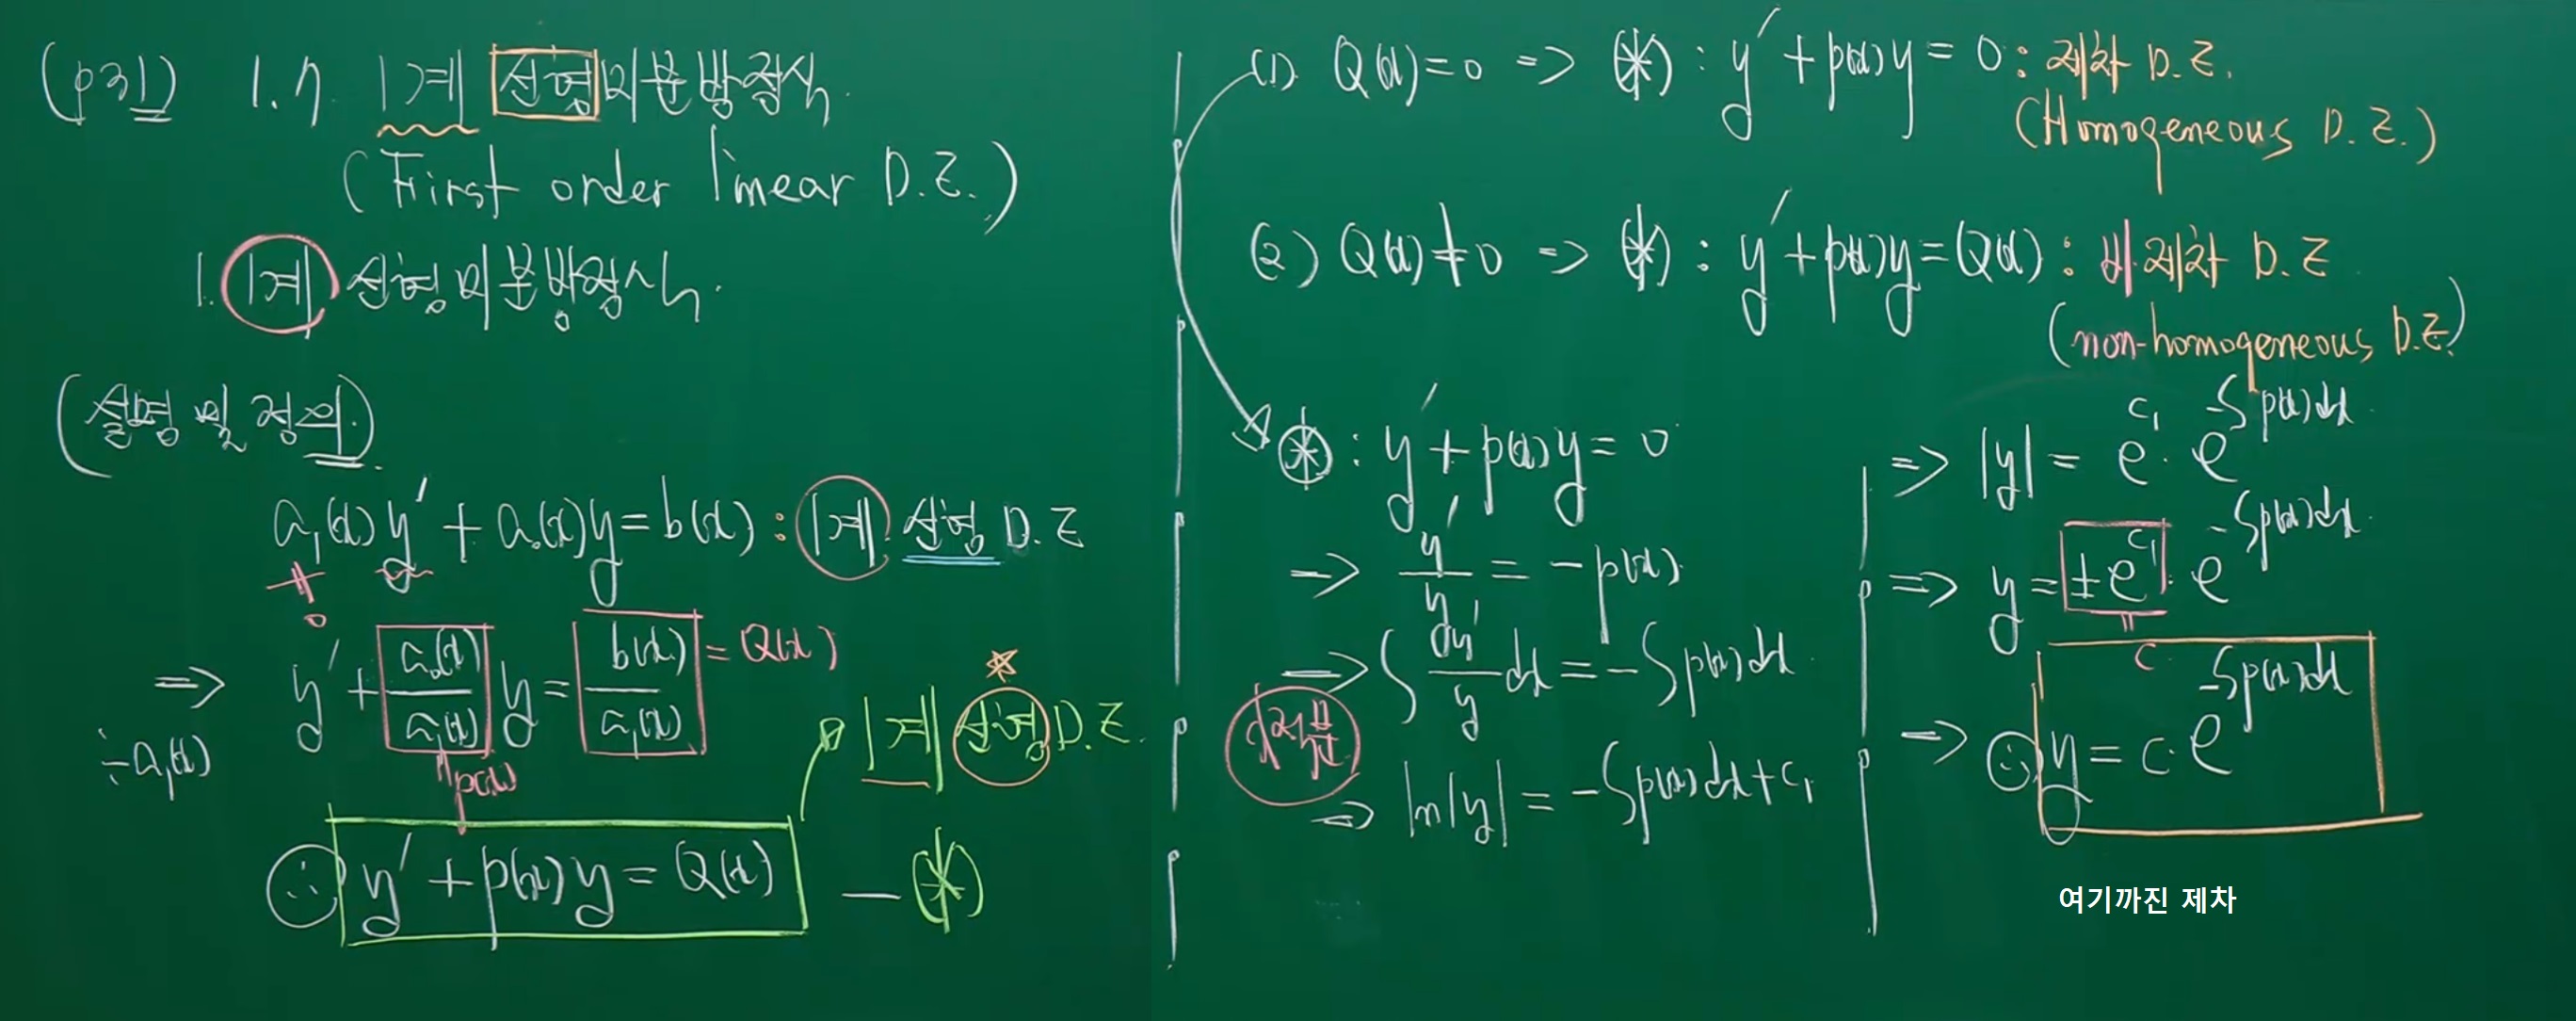 (p31) 1.7. 1계 선형미분방정식.
(First order linear D.E.)
1. 1계 선형미분방정식.
(설명 및 정의.)
a₁(x)y′ + a₀(x)y = b(x) : 1계 선형 D.E
≠ 0
⇒ y′ + a₀(x)/a₁(x) y = b(x)/a₁(x) = Q(x)
÷a₁(x)
∥ p(x)
1계 선형 D.E.
∴ y′ + p(x)y = Q(x) — (*)
(1) Q(x)=0 ⇒ (*) : y′ + p(x)y = 0 : 제차 D.E.
(Homogeneous D.E.)
(2) Q(x)≠0 ⇒ (*) : y′ + p(x)y = Q(x) : 비제차 D.E
(non-homogeneous D.E)
(*) : y′ + p(x)y = 0
⇒ y′/y = -p(x)
⇒ ∫ y′/y dx = -∫p(x)dx
⇒ ln|y| = -∫p(x)dx + c₁
⇒ |y| = e^c₁ · e^-∫p(x)dx
⇒ y = ±e^c₁ · e^-∫p(x)dx
∥
c
⇒ ∴ y = c · e^-∫p(x)dx
여기까진 제차